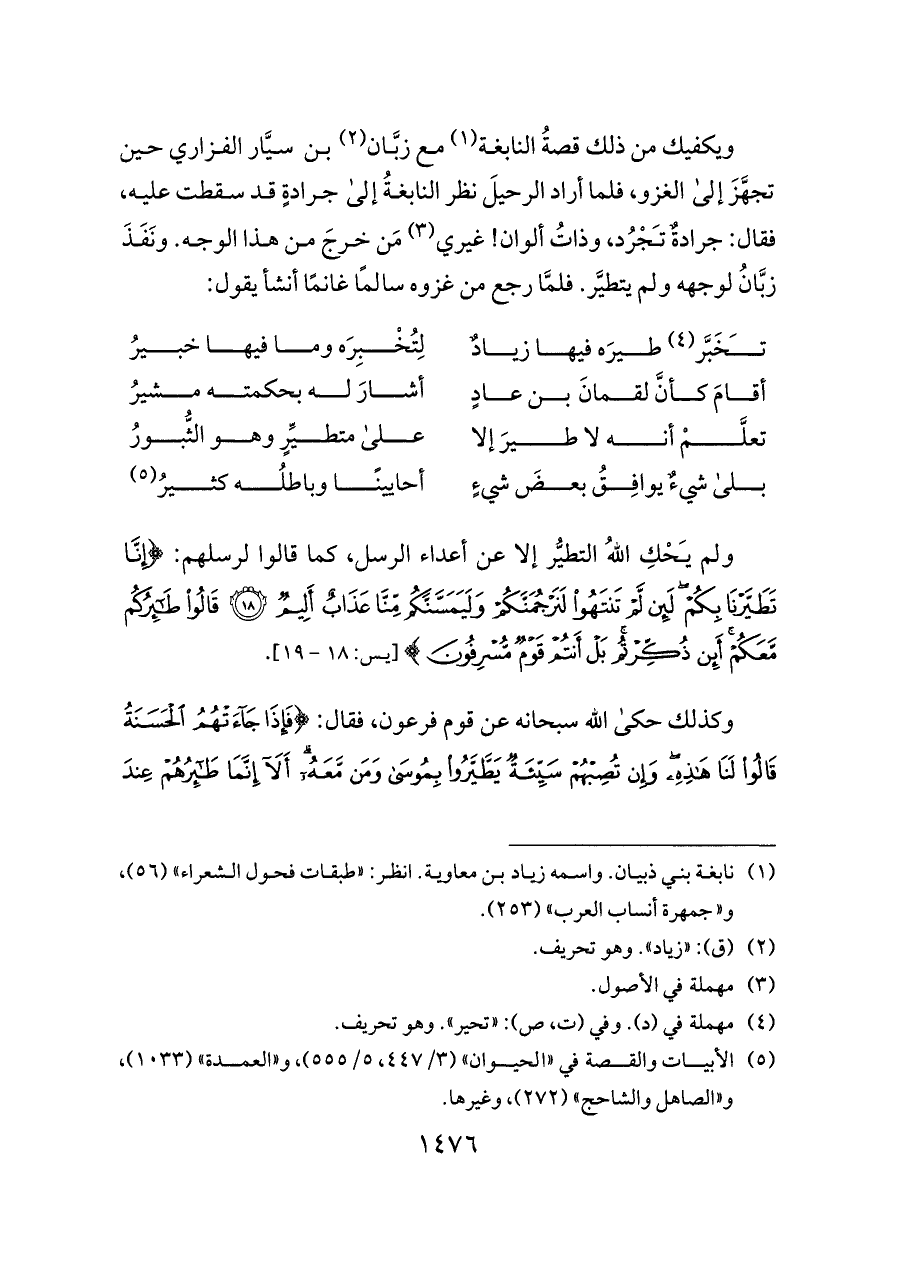 ويكفيك من ذلك قصةُ النابغة(١) مع زبَّان(٢) بن سيَّار الفزاري حين
تجهَّزَ إلىٰ الغزو، فلما أراد الرحيلَ نظر النابغةُ إلىٰ جرادةٍ قد سقطت عليه،
فقال: جرادةٌ تَجْرُد، وذاتُ ألوان! غيري(٣) مَن خرجَ من هذا الوجه. ونَفَذَ
زبَّانُ لوجهه ولم يتطيَّر. فلمَّا رجع من غزوه سالمًا غانمًا أنشأ يقول:
تـخَبَّر(٤) طيرَه فيها زيادٌ لِتُخْبِرَه وما فيها خبيرُ
أقامَ كأنَّ لقمانَ بن عادٍ أشارَ له بحكمته مشيرُ
تعلَّمْ أنه لا طيرَ إلا علىٰ متطيِّرٍ وهو الثُّبورُ
بلىٰ شيءٌ يوافِقُ بعضَ شيءٍ أحايينًا وباطلُه كثيرُ(٥)
ولم يَحْكِ اللهُ التطيُّر إلا عن أعداء الرسل، كما قالوا لرسلهم: ﴿إِنَّا
تَطَيَّرْنَا بِكُمْ ۖ لَئِن لَّمْ تَنتَهُوا۟ لَنَرْجُمَنَّكُمْ وَلَيَمَسَّنَّكُم مِّنَّا عَذَابٌ أَلِيمٌ ۝١٨ قَالُوا۟ طَـٰٓئِرُكُم
مَّعَكُمْ ۚ أَئِن ذُكِّرْتُم ۚ بَلْ أَنتُمْ قَوْمٌ مُّسْرِفُونَ﴾ [يس: ١٨ - ١٩].
وكذلك حكىٰ الله سبحانه عن قوم فرعون، فقال: ﴿فَإِذَا جَآءَتْهُمُ ٱلْحَسَنَةُ
قَالُوا۟ لَنَا هَـٰذِهِۦ ۖ وَإِن تُصِبْهُمْ سَيِّئَةٌ يَطَّيَّرُوا۟ بِمُوسَىٰ وَمَن مَّعَهُۥٓ ۗ أَلَآ إِنَّمَا طَـٰٓئِرُهُمْ عِندَ
(١) نابغة بني ذبيان. واسمه زياد بن معاوية. انظر: «طبقات فحول الشعراء» (٥٦)،
و«جمهرة أنساب العرب» (٢٥٣).
(٢) (ق): «زياد». وهو تحريف.
(٣) مهملة في الأصول.
(٤) مهملة في (د). وفي (ت، ص): «تحير». وهو تحريف.
(٥) الأبيات والقصة في «الحيوان» (٣/ ٤٤٧، ٥/ ٥٥٥)، و«العمدة» (١٠٣٣)،
و«الصاهل والشاحج» (٢٧٢)، وغيرها.
١٤٧٦